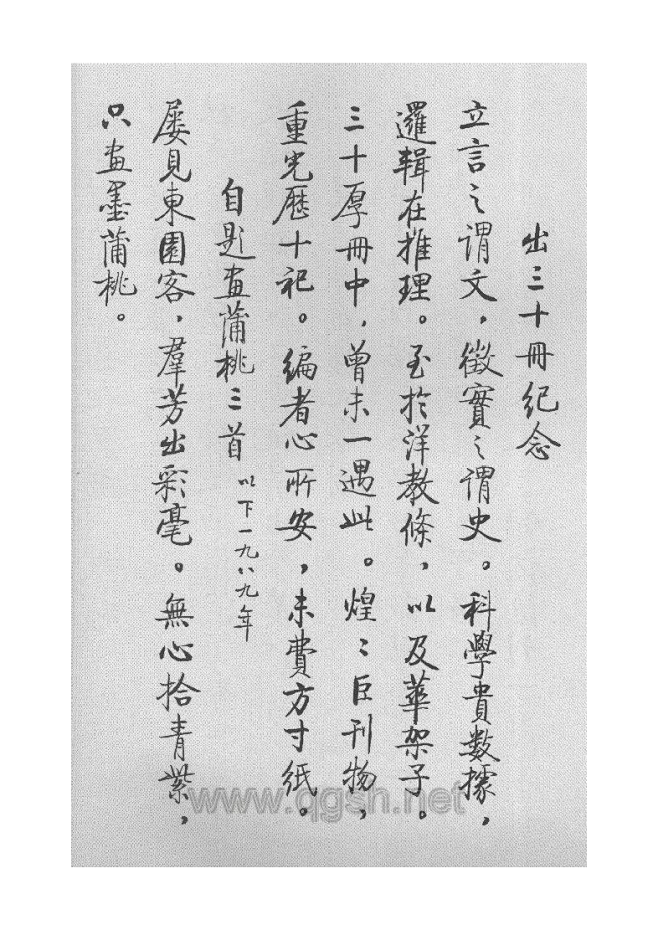 出三十冊纪念
立言之谓文，徵實之谓史。科學貴数據，
邏輯在推理。至於洋教條，以及華架子。
三十厚冊中，曾未一遇此。煌〻巨刊物，
重光歷十祀。编者心所安，未費方寸紙。
自题画蒲桃三首 以下一九八九年
屡見東園客，羣芳出彩毫。無心拾青紫，
只画墨蒲桃。
www.qgsh.net